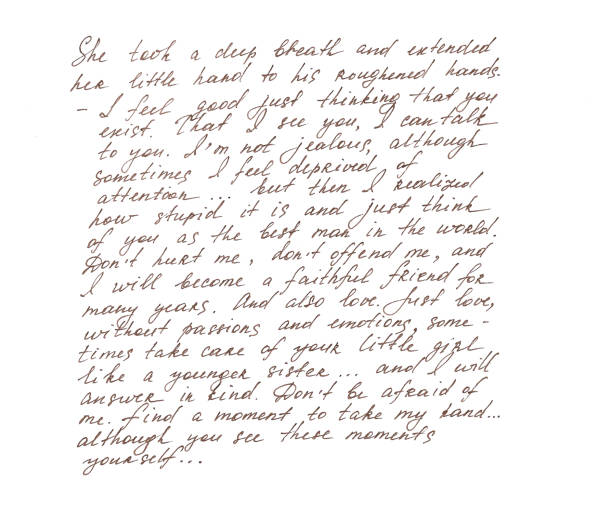 She took a deep breath and extended
her little hand to his roughened hands.
– I feel good just thinking that you
exist. That I see you, I can talk
to you. I'm not jealous, although
sometimes I feel deprived of
attention... but then I realized
how stupid it is and just think
of you as the best man in the world.
Don't hurt me, don't offend me, and
I will become a faithful friend for
many years. And also love. Just love,
without passions and emotions, some-
times take care of your little girl
like a younger sister... and I will
answer in kind. Don't be afraid of
me. Find a moment to take my hand...
although you see these moments
yourself...